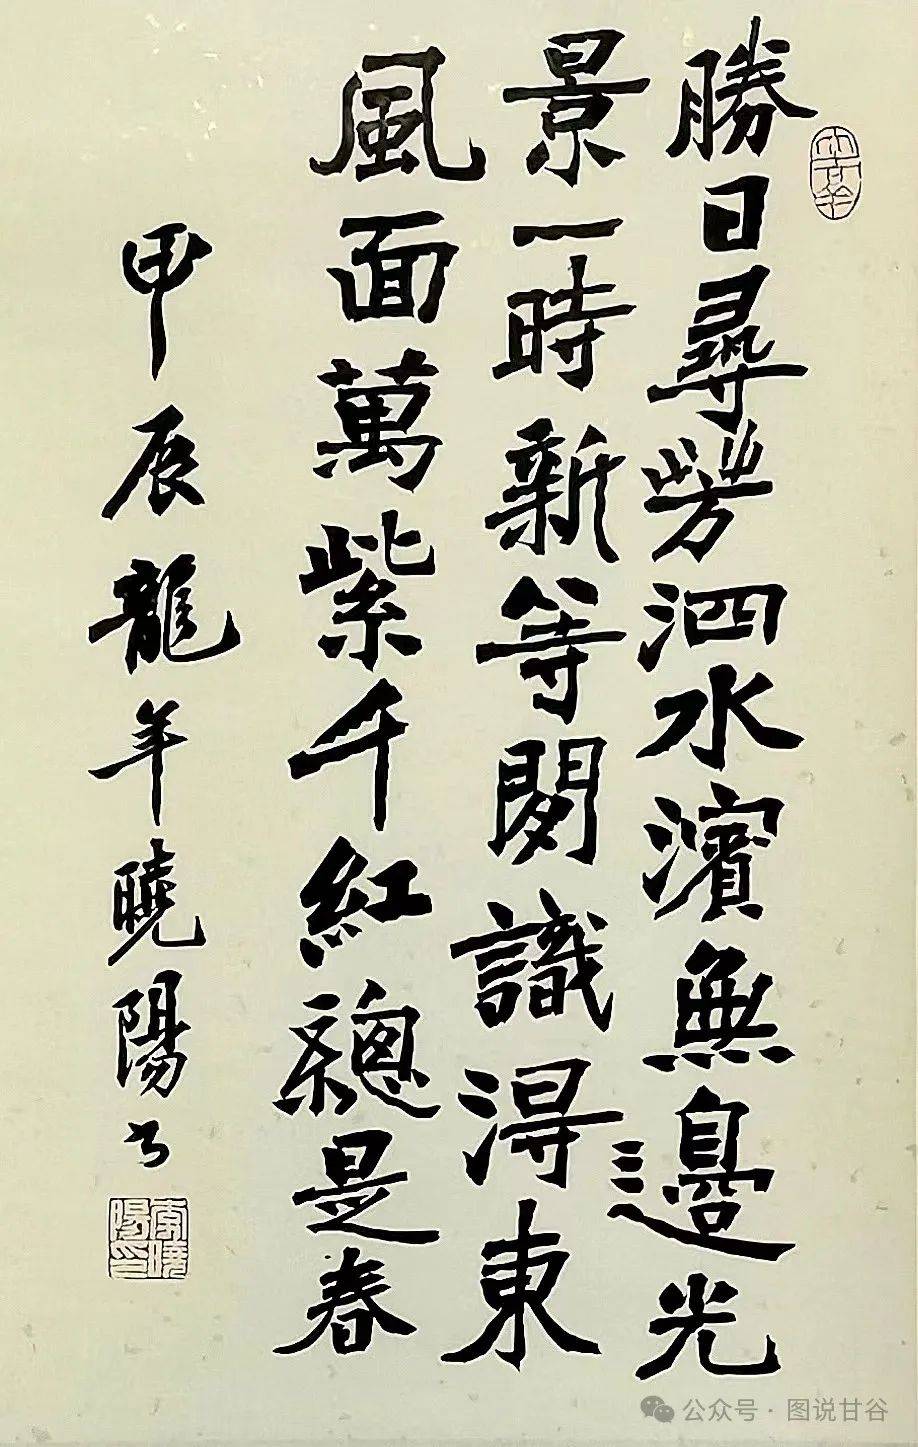 勝日尋芳泗水濱無邊光
景一時新等閒識得東
風面萬紫千紅總是春
甲辰龍年曉陽书
公众号 · 图说甘谷